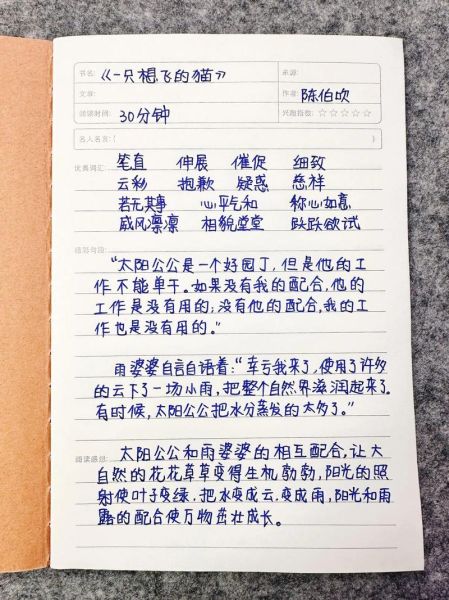 书名: 《一只想飞的猫》 来源:
文章: 作者: 陈伯吹
阅读时间: 30分钟 兴趣指数: ☆☆☆☆☆
名人名言: ( )
优美词汇: 笔直 伸展 催促 细致
云彩 抱歉 疑惑 慈祥
若无其事 心平气和 称心如意
威风凛凛 相貌堂堂 跃跃欲试
精彩句段:
“太阳公公是一个好园丁,但是他的工
作不能单干。如果没有我的配合,他的
工作是没有用的;没有他的配合,我的工
作也是没有用的。”
雨婆婆自言自语着:“幸亏我来了,使用了许多
的云下了一场小雨,把整个自然界滋润起来了.
有时候,太阳公公把水分蒸发的太多了。”
阅读感想: 太阳公公和雨婆婆的相互配合,让大
自然的花花草草变得生机勃勃,阳光的照
射使叶子变绿.把水变成云.变成雨,阳光和雨
露的配合使万物茁壮成长。